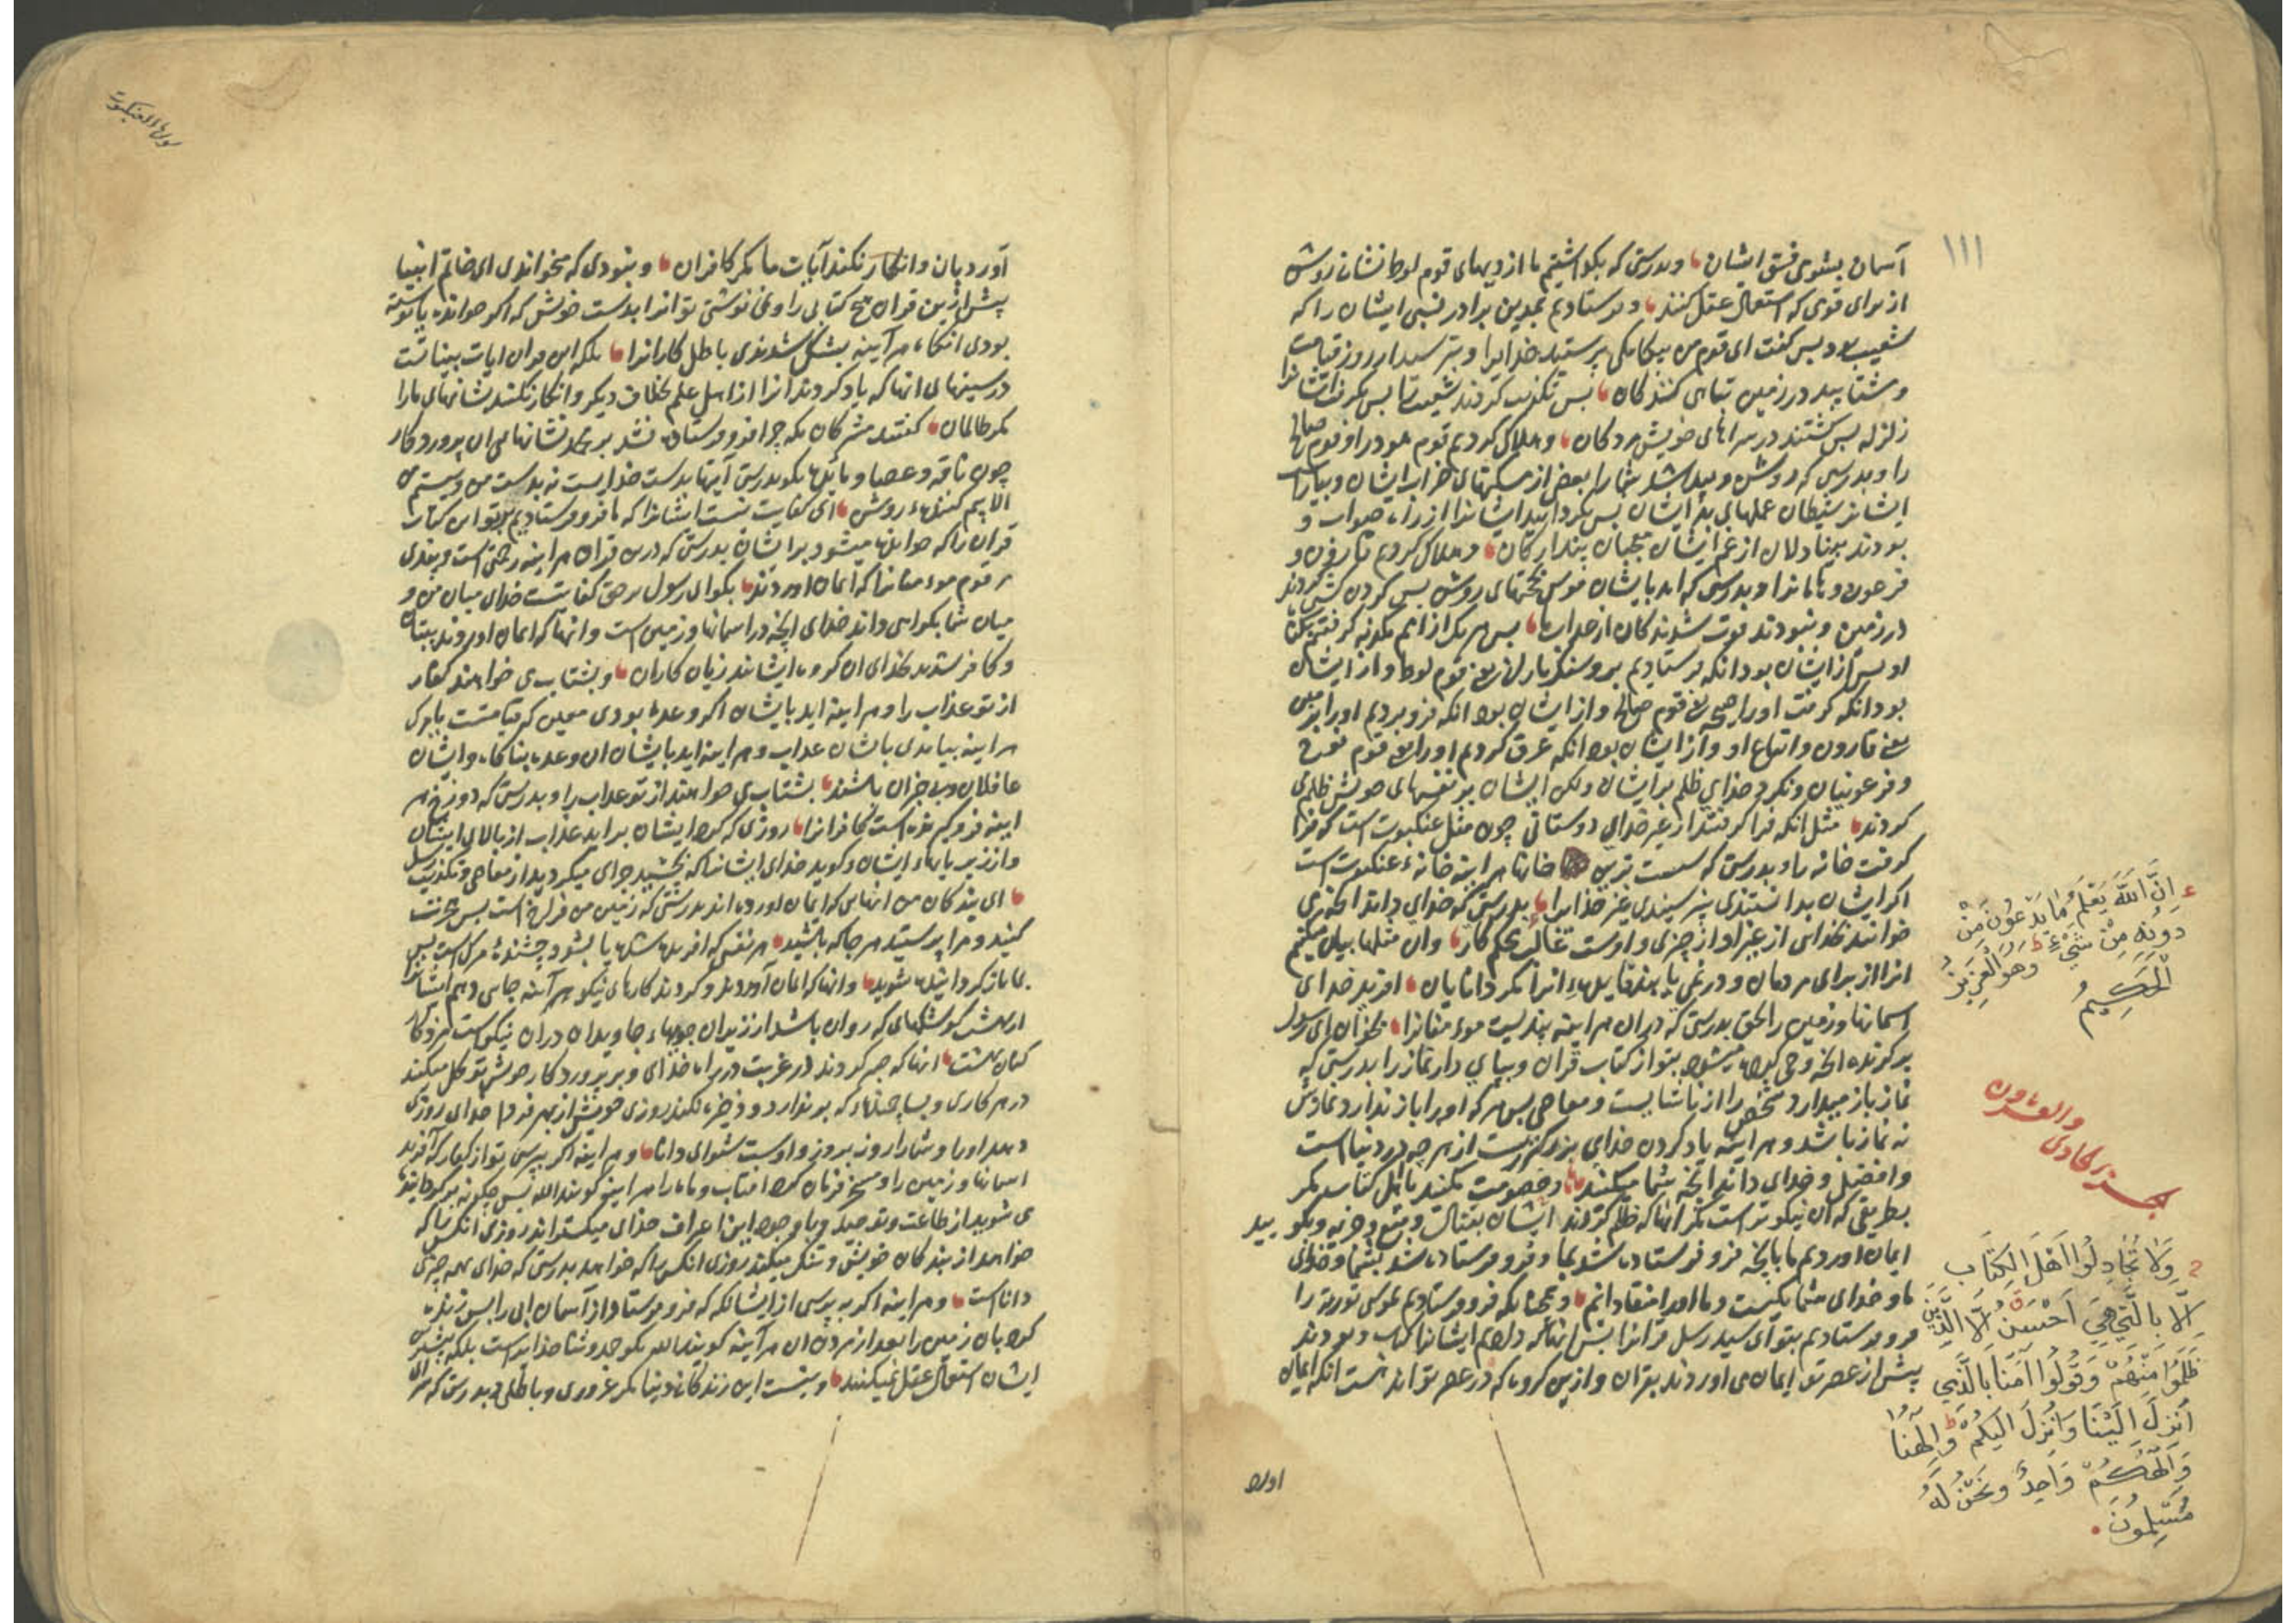 ۱۱۱
آسمان بشومی فسق ایشان وبدرستی که بگذاشتیم ما از دیهای قوم لوط نشانه روشن
از برای قومی که استعمال عقل کنند وفرستادیم بمدین برادر نسبی ایشان را که
شعیب بود پس گفت ای قوم من بیگانگی پرستید خدایرا وبترسید از روز قیامت
ومشتابید در زمین تباهی کنندگان پس تکذیب کردند شعیب را پس بگرفت ایشانرا
زلزله پس گشتند در سراهای خویش مردگان وهلاک کردیم قوم هود را وقوم صالح
را وبدرستی که روشن وپیدا شد شما را بعضی از مسکنهای خراب ایشان وبیاراست
ایشانرا شیطان عملهای بد ایشان پس بگردانید ایشانرا از راه صواب و
بودند بینا دلان از عم ایشان پندارگان وهلاک کردیم قارون و
فرعون وهامانرا وبدرستی که امد بایشان موسی بحجتهای روشن پس گردن کشی کردند
در زمین ونبودند فوت شوندگان از عذاب ما پس هر یک از امم مکذبه گرفتیم بگناه
او پس از ایشان بود انکه فرستادیم برو سنگ باران یعنی قوم لوط واز ایشان
بود انکه گرفت اورا صیحه یعنی قوم صالح واز ایشان بود انکه فرو بردیم اورا بزمین
یعنی قارون واتباع او واز ایشان بود انکه غرق کردیم اورا یعنی قوم نوح
وفرعونیان ونکرد خدای ظلم بر ایشان ولکن ایشان بر نفسهای خویش ظلم می
کردند مثل انکه فرا گرفتند از غیر خدای دوستانی چون مثل عنکبوت است که فرا
گرفت خانه را وبدرستی که سست ترین خانها هر اینه خانهء عنکبوت است
اگر ایشان بدانستندی نپرستیدندی غیر خدایرا بدرستی که خدای داند انچه می
خوانند بخدای از غیر او از چیزی واوست غالب محکم کار وان مثلها بیان میکنیم
انرا از برای مردمان ودر نمی یابند فایدهء انرا مگر دانایان افرید خدای
اسمانها وزمین را بحق بدرستی که در ان هر اینه پندیست مومنانرا بخوان ای رسول
برگزیده انچه وحی کرده میشود بتو از کتاب قران وبپای دار نماز را بدرستی که
نماز باز میدارد شخص را از ناشایست ومعاصی پس هر که اورا باز ندارد نمازش
نه نماز باشد وهر اینه یاد کردن خدای بزرگترست از هر چه در دنیا است
وافضل وخدای داند انچه شما میکنید وخصومت مکنید با اهل کتاب مگر
بطریقی که ان نیکوتر است مگر انها که ظلم کردند ایشان بقتال ومنع وجزیه وبگویید
ایمان اوردیم ما بانچه فرو فرستاده شد بما وفرو فرستاده شد بشما وخدای
ما وخدای شما یکیست وما اورا منقادانیم وهمچنانکه فرو فرستادیم بموسی توریة را
فرو فرستادیم بتو ای سید رسل قرانرا پس انها که دادیم ایشانرا کتاب وبودند
پیش از عصر تو ایمان می اوردند بقران وازین گروه که در عصر تو اند هست انکه ایمان
اورد
ع اِنَّ اللّهَ يَعْلَمُ مَا يَدْعُونَ مِنْ
دُونِهِ مِنْ شَيْءٍ وَهُوَ الْعَزِيزُ
الْحَكِيمُ
الجزء الحادى
والعشرون
وَلَا تُجَادِلُوا اَهْلَ الْكِتَابِ
اِلَّا بِالَّتِي هِيَ اَحْسَنُ اِلَّا الَّذِينَ
ظَلَمُوا مِنْهُمْ وَقُولُوا آمَنَّا بِالَّذِي
اُنْزِلَ اِلَيْنَا وَاُنْزِلَ اِلَيْكُمْ وَاِلٰهُنَا
وَاِلٰهُكُمْ وَاحِدٌ وَنَحْنُ لَهُ
مُسْلِمُونَ
سورة العنكبوت
آورد بان وانکار نکنند آیات ما مگر کافران ونبودی که میخواندی ای خاتم انبیا
پیش ازین قران هیچ کتابی را ونمی نوشتی تو انرا بدست خویش که اگر خوانده یا نوشته
بودی انگاه هر آینه بشک شدندی باطل کارانرا بلکه این قران ایات بیناتست
در سینهای انها که یاد کردند انرا از اهل علم بخلاف دیگر وانکار نکنند نشانهای مارا
مگر ظالمان گفتند مشرکان مکه چرا فرو فرستاده نشد بر محمد نشانها از پروردگار
چون ناقه وعصا ومائده بگو بدرستی آیتها بدست خدایست نه بدست من ونیستم من
الا بیم کنندهء روشن ای کفایت نیست ایشانرا که ما فرو فرستادیم بر تو این کتاب
قران را که خوانده میشود بر ایشان بدرستی که درین قران هر اینه رحمتی است وپندی
مر قوم مومنانرا که ایمان اوردند بگو ای رسول بر حق کفایتست خدای میان من و
میان شما بگواهی داند خدای انچه در اسمانها وزمین است وانها که ایمان اوردند ببتان
وکافر شدند بخدای ان گروه ایشانند زیان کاران وبشتاب می خواهند کفار
از تو عذاب را وهر اینه اید بایشان اگر وعدهء بودی معین که قیامتست یا مرگ
هر اینه بیامدی بایشان عذاب وهر اینه اید بایشان ان وعده بناگاه وایشان
غافلان وبی خبران باشند بشتاب می خواهند از تو عذاب را وبدرستی که دوزخ هر
اینه فرو گیرنده است کافرانرا روزی که کرد ایشان براید عذاب از بالای ایشان
واز زیر پایهاء ایشان وگوید خدای ایشانرا که بچشید جزای میکردید از معاصی وتکذیب رسل
ای بندگان من انهایی که ایمان اورده اند بدرستی که زمین من فراخ است پس هجرت
کنید ومرا پرستید هر جا که باشید هر نفسی که افریده شده یا بشود چشندهٔ مرگ است پس
بما باز گردانیده شوید وانها که ایمان آوردند وکردند کارهای نیکو هر آینه جای دهم ایشانرا
از بهشت کوشکهای که روان باشد از زیر ان جویهاء جاویدان در ان نیکوست مزدکار
کنان بهشت انها که صبر کردند در غربت در راه خدای وبر پروردگار خویش توکل میکنند
در هر کاری وبسا جنبندهء که بر ندارد وذخیره نکند روزی خویش از بهر فردا خدای روزی
دهد اورا وشما را روز بروز واوست شنوای دانا وهر اینه اگر بپرسی تو از کفار که آفرید
اسمانها وزمین را ومسخر فرمان کرد افتاب وماه را هر اینه گویند الله پس چگونه برگردانیده
می شوید از طاعت وتوحید وبا وجود این اعتراف خدای میگستراند روزی انکس را که
خواهد از بندگان خویش وتنگ میکند روزی انکس را که خواهد بدرستی که خدای بهمه چیزی
داناست وهر اینه اگر بپرسی از ایشانکه که فرو فرستاد از آسمان ابی را پس زنده
کرد بان زمین را بعد از مردن ان هر آینه گویند الله بگو حمد وثنا خدایراست بلکه بیشترین
ایشان استعمال عقل نمیکنند ونیست این زندگانی دنیا مگر غروری وباطلی وبدرستی که سرای